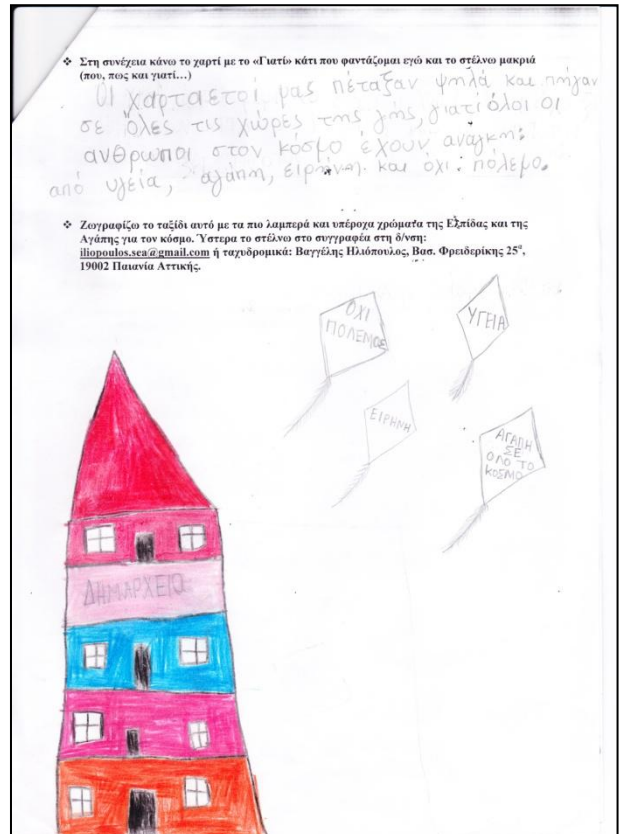 ❖ Στη συνέχεια κάνω το χαρτί με το «Γιατί» κάτι που φαντάζομαι εγώ και το στέλνω μακριά
(που, πως και γιατί…)
Οι χαρταετοί μας πέταξαν ψηλά και πήγαν
σε όλες τις χώρες της γης, γιατί όλοι οι
ανθρωποι στον κόσμο έχουν αναγκη:
από υγεία, αγάπη, ειρήνη. και όχι: πόλεμο.
❖ Ζωγραφίζω το ταξίδι αυτό με τα πιο λαμπερά και υπέροχα χρώματα της Ελπίδας και της
Αγάπης για τον κόσμο. Ύστερα το στέλνω στο συγγραφέα στη δ/νση:
iliopoulos.sea@gmail.com ή ταχυδρομικά: Βαγγέλης Ηλιόπουλος, Βασ. Φρειδερίκης 25α,
19002 Παιανία Αττικής.
ΟΧΙ
ΠΟΛΕΜΟΣ
ΥΓΕΙΑ
ΕΙΡΗΝΗ
ΑΓΑΠΗ
ΣΕ
ΟΛΟ ΤΟ
ΚΟΣΜΟ
ΔΗΜΑΡΧΕΙΟ